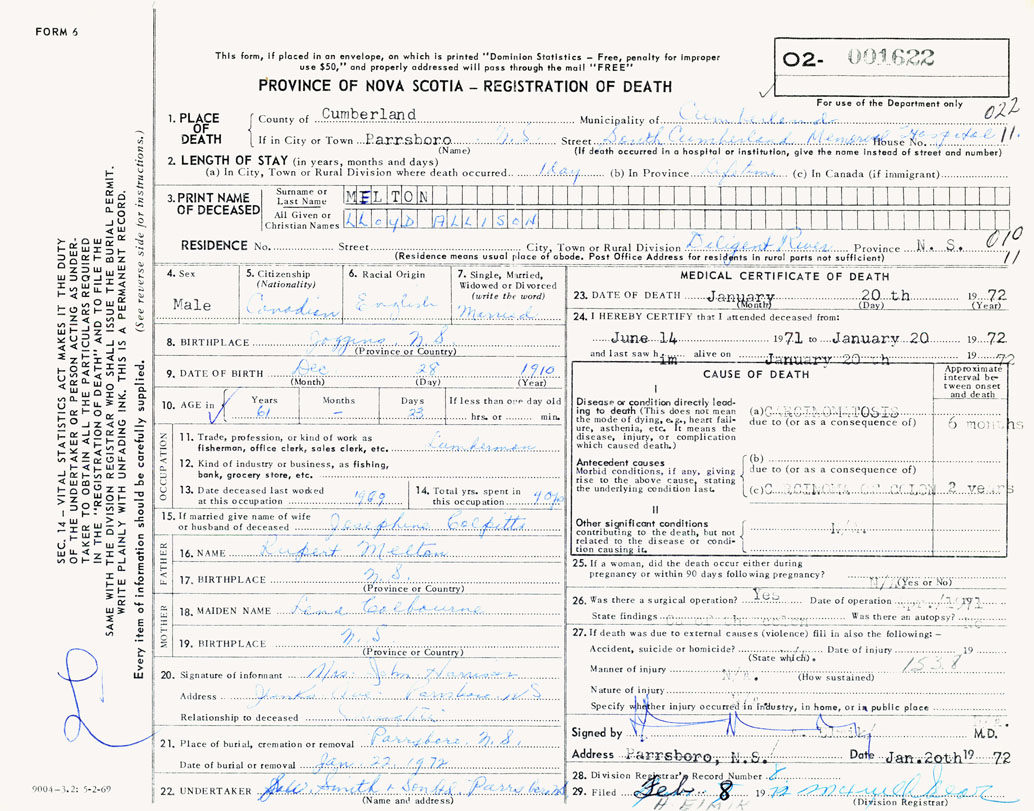 FORM 6
This form, if placed in an envelope, on which is printed "Dominion Statistics – Free, penalty for improper
use $50," and properly addressed will pass through the mail "FREE"
O2- 001622
For use of the Department only
PROVINCE OF NOVA SCOTIA – REGISTRATION OF DEATH
022
1. PLACE OF DEATH
County of Cumberland Municipality of Cumberland
If in City or Town Parrsboro N.S. Street South Cumberland Memorial Hospital House No. 11.
(Name) (If death occurred in a hospital or institution, give the name instead of street and number)
2. LENGTH OF STAY (in years, months and days)
(a) In City, Town or Rural Division where death occurred 1 day (b) In Province Lifetime (c) In Canada (if immigrant)
3. PRINT NAME OF DECEASED
Surname or Last Name MELTON
All Given or Christian Names LLOYD ALLISON
RESIDENCE No. Street City, Town or Rural Division Diligent River Province N. S. 010
(Residence means usual place of abode. Post Office Address for residents in rural parts not sufficient) 11
4. Sex
Male
5. Citizenship
(Nationality)
Canadian
6. Racial Origin
English
7. Single, Married,
Widowed or Divorced
(write the word)
Married
8. BIRTHPLACE Joggins, N.S.
(Province or Country)
9. DATE OF BIRTH Dec 28 1910
(Month) (Day) (Year)
10. AGE in
Years Months Days If less than one day old
61 – 23 hrs. or min.
OCCUPATION
11. Trade, profession, or kind of work as
fisherman, office clerk, sales clerk, etc. Lumberman
12. Kind of industry or business, as fishing,
bank, grocery store, etc.
13. Date deceased last worked
at this occupation 1969
14. Total yrs. spent in
this occupation 40
15. If married give name of wife
or husband of deceased Josephine Colpitts
FATHER
16. NAME Rupert Melton
17. BIRTHPLACE N.S.
(Province or Country)
MOTHER
18. MAIDEN NAME Lena Colbourne
19. BIRTHPLACE N.S.
(Province or Country)
20. Signature of informant Mrs. John Harrison
Address Jenks Ave. Parrsboro NS
Relationship to deceased
21. Place of burial, cremation or removal Parrsboro, N.S.
Date of burial or removal Jan 22, 1972
22. UNDERTAKER Smith + Sons, Parrsboro
(Name and address)
MEDICAL CERTIFICATE OF DEATH
23. DATE OF DEATH January 20 th 1972
(Month) (Day) (Year)
24. I HEREBY CERTIFY that I attended deceased from:
June 14 1971 to January 20 1972
and last saw him alive on January 20 th 1972
CAUSE OF DEATH
Approximate
interval be-
tween onset
and death
I
Disease or condition directly lead-
ing to death (This does not mean
the mode of dying, e.g., heart fail-
ure, asthenia, etc. It means the
disease, injury, or complication
which caused death.)
(a) CARCINOMATOSIS
due to (or as a consequence of)
6 months
Antecedent causes
Morbid conditions, if any, giving
rise to the above cause, stating
the underlying condition last.
(b)
due to (or as a consequence of)
(c) C RCINOMA OF COLON 2 years
II
Other significant conditions
contributing to the death, but not
related to the disease or condi-
tion causing it.
N/A.
25. If a woman, did the death occur either during
pregnancy or within 90 days following pregnancy? N/A
(Yes or No)
26. Was there a surgical operation? Yes Date of operation 1971
State findings Was there an autopsy? no
27. If death was due to external causes (violence) fill in also the following: –
Accident, suicide or homicide? Date of injury 19
(State which).
1538
Manner of injury N/A.
(How sustained)
Nature of injury
Specify whether injury occurred in industry, in home, or in public place
Signed by M.D.
Address Parrsboro, N.S. Date Jan.20th 1972
28. Division Registrar's Record Number 8
29. Filed Feb 8 1972
(Division Registrar)
SEC. 14 – VITAL STATISTICS ACT MAKES IT THE DUTY
OF THE UNDERTAKER OR PERSON ACTING AS UNDER-
TAKER TO OBTAIN ALL THE PARTICULARS REQUIRED
IN THE "REGISTRATION OF DEATH" AND TO FILE THE
SAME WITH THE DIVISION REGISTRAR WHO SHALL ISSUE THE BURIAL PERMIT.
WRITE PLAINLY WITH UNFADING INK. THIS IS A PERMANENT RECORD.
Every item of information should be carefully supplied. (See reverse side for instructions.)
9004-3.2: 5-2-69